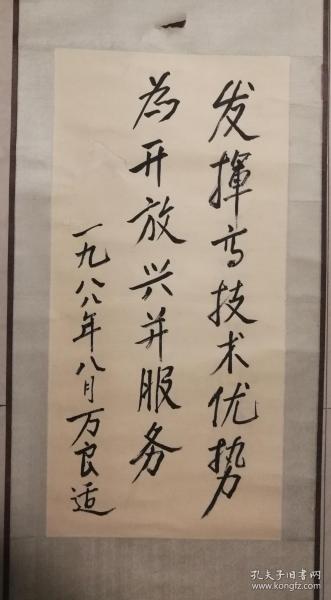 发揮高技术优势
為开放兴并服务
一九八八年八月万良适
孔夫子旧书网